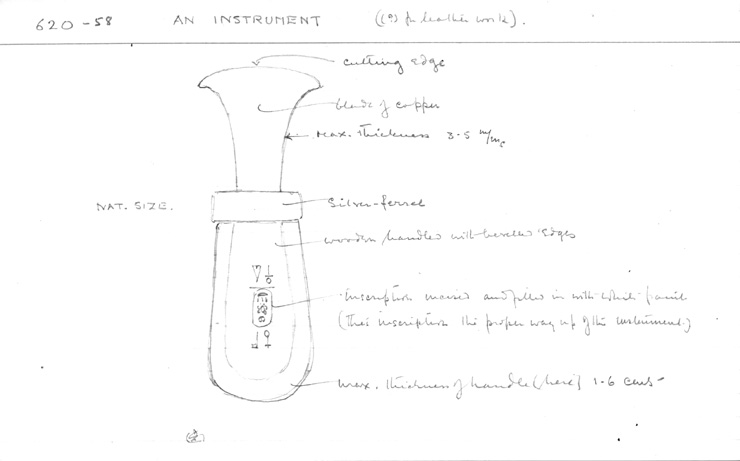 620 - 58 AN INSTRUMENT ((?) for leather work).
cutting edge
blade of copper
Max. thickness 3.5 m/m.
NAT. SIZE.
Silver-ferrel
wooden handle with bevelled edges
Inscription incised and filled in with white paint
(This inscription the proper way up of the instrument.)
max. thickness of handle (here) 1.6 cents